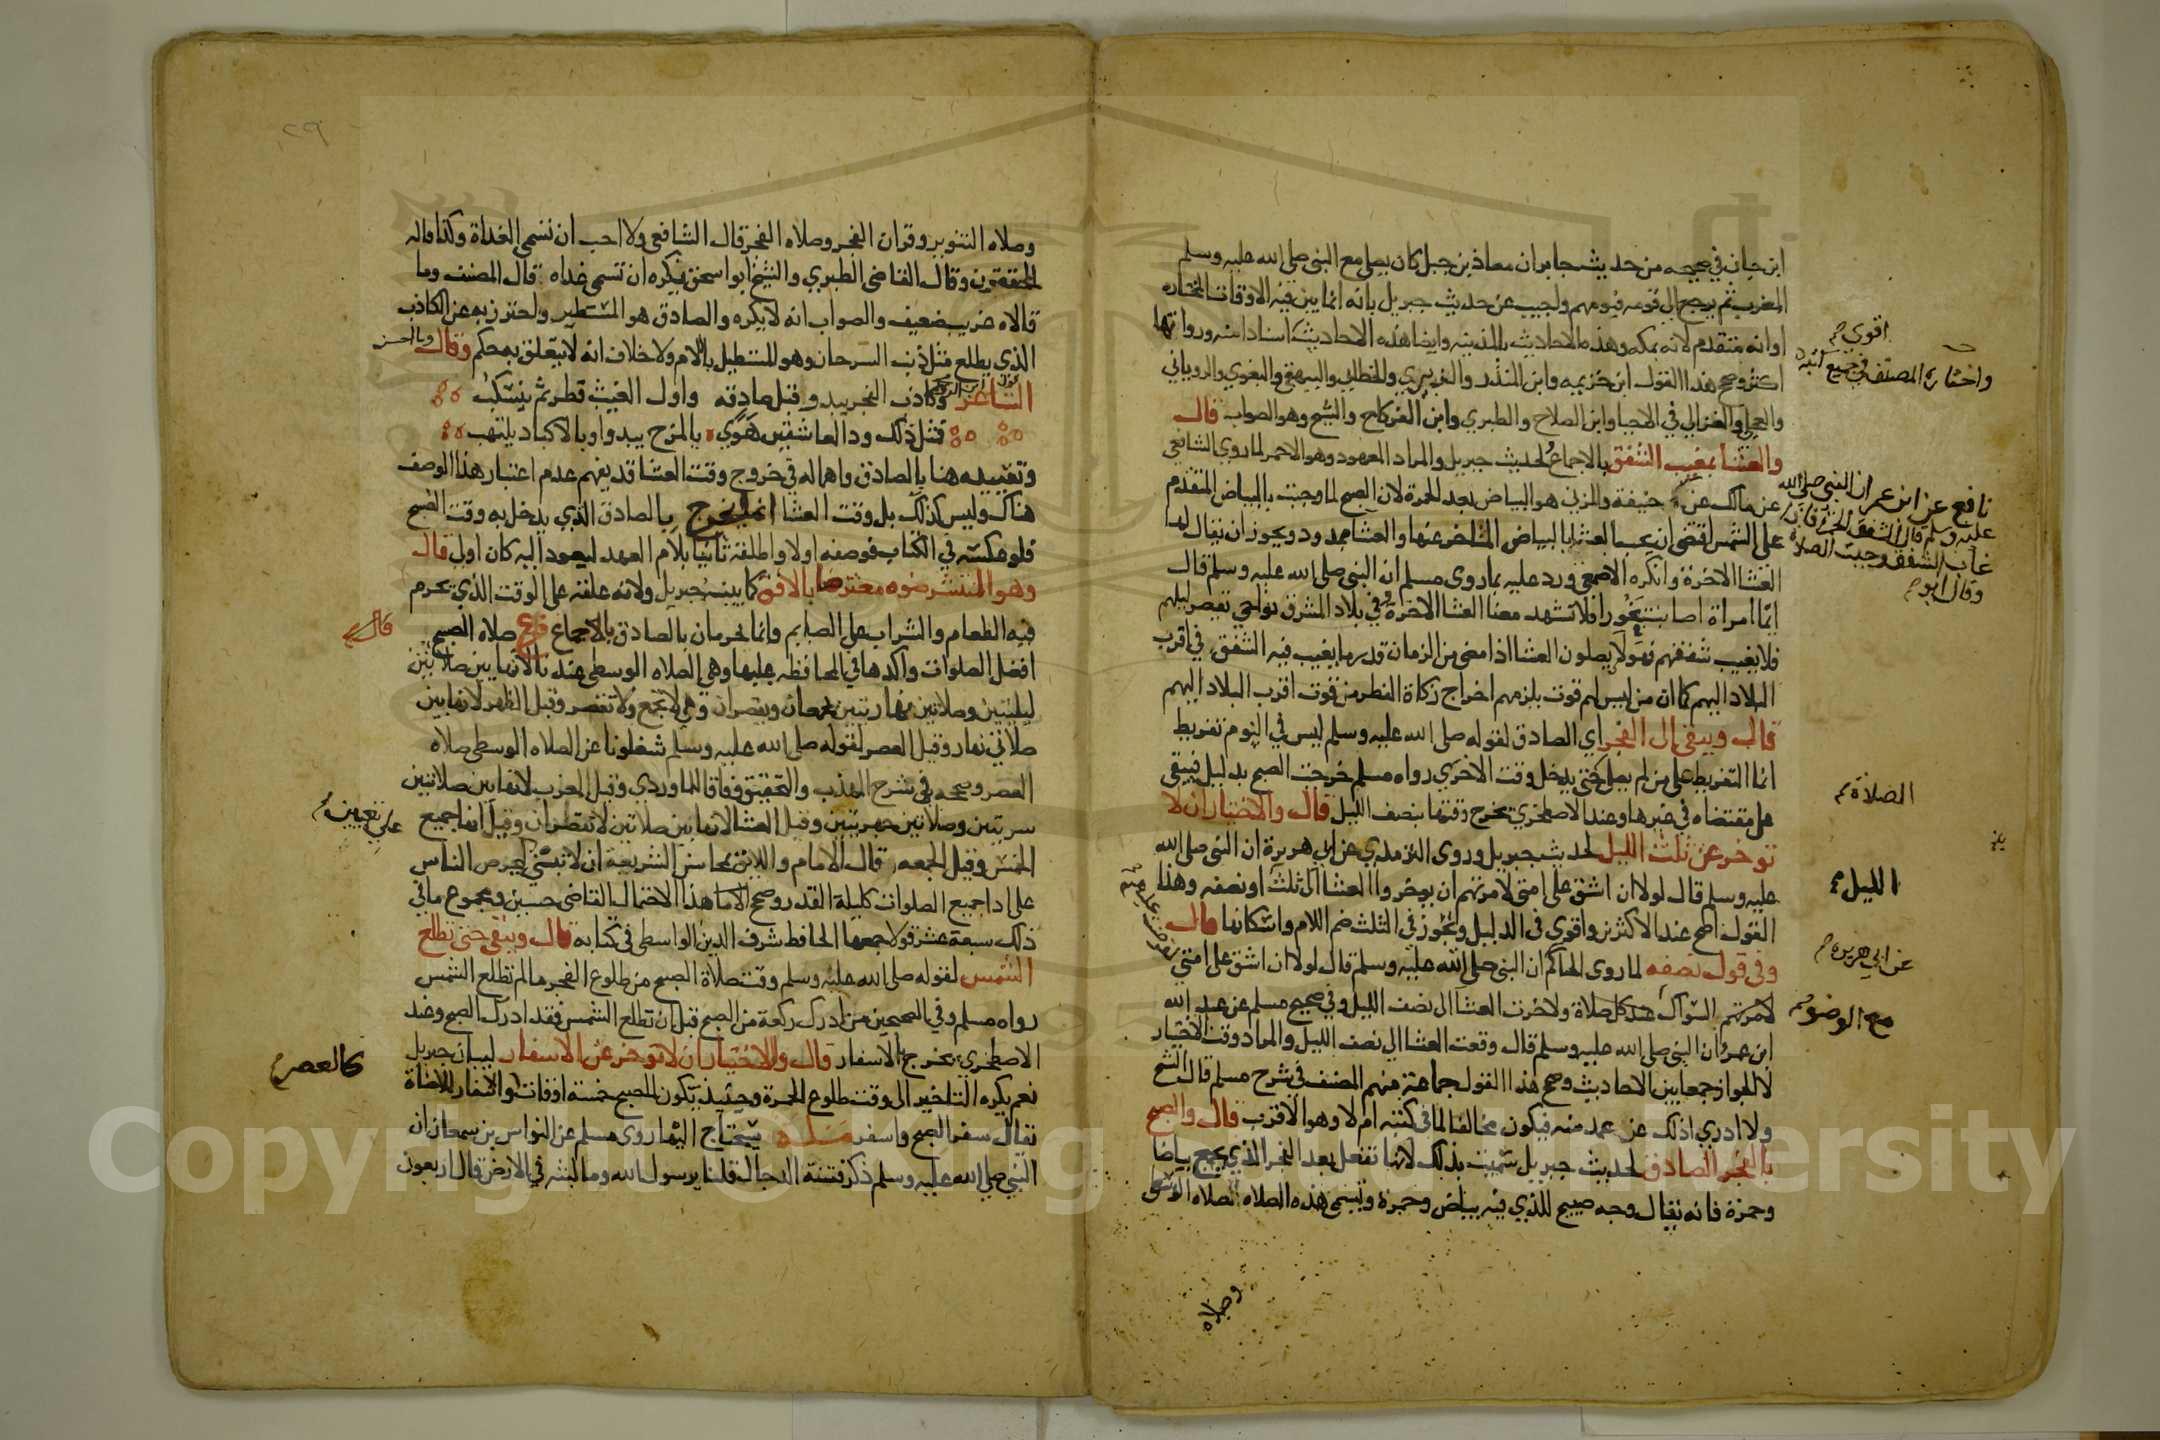 ابن حبان في صحيحه من حديث جابر ان معاذ بن جبل كان يصلي مع النبي صلى الله عليه وسلم
المغرب ثم يرجع الى قومه فيومهم واجيب عن حديث جبريل بانه انما بين فيه الاوقات المختاره
او انه متقدم لانه بمكه وهذه الاحاديث بالمدينه وايضا هذه الاحاديث اسنادا منه ورواتها
اقوى
اكثر وصحح هذا القول ابن خزيمه وابن المنذر والزبيري والخطابي والبيهقي والبغوي والروياني
واختاره المصنف في جميع كتبه
والعجلي والغزالي في الاحيا وابن الصلاح والطبري وابن الفركاح والشيخ وهو الصواب قال
والعشا بمغيب الشفق بالاجماع لحديث جبريل والمراد المعهود وهو الاحمر لما روى الشافعي
عن مالك عن حنيفة والمزني هو البياض بعد الحمرة لان الصبح لما وجبت بالبياض المتقدم
نافع عن ابن عمر ان النبي صلى الله
عليه وسلم قال الشفق الحمرة فاذا
غاب الشفق وجبت الصلاة
وقال ابو
على الشمس اقتضى ان يجب العشا بالبياض المتاخر عنها والعشا ممدود ويجوز ان يقال لها
العشا الاخرة وانكره الاصمعي ورد عليه بما روى مسلم ان النبي صلى الله عليه وسلم قال
ايما امراة اصابت بخورا فلا تشهد معنا العشا الاخرة وفي بلاد المشرق نواحي تقصر ليلهم
فلا يغيب شفقهم فهولا يصلون العشا اذا مضى من الزمان قدر ما يغيب فيه الشفق في اقرب
البلاد اليهم كما ان من ليس لهم قوت يلزمهم اخراج زكاة الفطر من قوت اقرب البلاد اليهم
قال ويبقى الى الفجر اي الصادق لقوله صلى الله عليه وسلم ليس في النوم تفريط
انما التفريط على من لم يصل حتى يدخل وقت الاخرى رواه مسلم خرجت الصبح بدليل فيبقى
الصلاة
على مقتضاه في غيرها وعند الاصطخري يخرج وقتها بنصف الليل قال والاختيار ان لا
توخر عن ثلث الليل لحديث جبريل وروى الترمذي عن ابي هريرة ان النبي صلى الله
عليه وسلم قال لولا ان اشق على امتي لامرتهم ان يوخروا العشا الى ثلث او نصفه وهذا
الليل
القول اصح عند الاكثرين واقوى في الدليل ويجوز في الثلث ضم اللام واسكانها قال
وفي قول نصفه لما روى الحاكم ان النبي صلى الله عليه وسلم قال لولا ان اشق على امتي
عن ابي هريره
لامرتهم السواك عند كل صلاة ولاخرت العشا الى نصف الليل وفي صحيح مسلم عن عبد الله
مع الوضو
ابن عمر ان النبي صلى الله عليه وسلم قال وقت العشا الى نصف الليل والمراد وقت الاختيار
لا الجواز جمعا بين الاحاديث وصحح هذا القول جماعة منهم المصنف في شرح مسلم قال الشيخ
ولا ادري اذلك عن عمد منه فيكون مخالفا لما في كتبه ام لا وهو الاقرب قال والصبح
بالفجر الصادق لحديث جبريل سميت بذلك لانها تفعل بعد الفجر الذي يجمع بياضا
وحمرة فانه يقال وجه صبيح للذي فيه بياض وحمرة وتسمى هذه الصلاه صلاه الوسطى
وصلاه
٢٩
وصلاه التنوير وقران الفجر وصلاه الفجر قال الشافعي ولا احب ان تسمى الغداة وكذا قاله
المحققون وقال القاضي الطبري والشيخ ابو اسحق يكره ان تسمى غداه قال المصنف وما
قالاه غريب ضعيف والصواب انه لا يكره والصادق هو المستطير واحترز به عن الكاذب
الذي يطلع مثل ذنب السرحان وهو المستطيل باللام ولا خلاف انه لا يتعلق به حكم وقال
وما احسن
قول
الشاعر وكاذب الفجر يبدو قبل صادقه واول الغيث قطر ثم ينسكب
فمثل ذلك ود العاشقين هوى بالمزح يبدوا وبالاكباد يلتهب
وتقييده هنا بالصادق واهماله في خروج وقت العشا قد يفهم عدم اعتبار هذا الوصف
هناك وليس كذلك بل وقت العشا انما يخرج بالصادق الذي يدخل به وقت الصبح
فلو عكسه في الكتاب فوصفه اولا واطلقه ثانيا بلام العهد ليعود اليه كان اولى قال
وهو المنتشر ضوه معترضا بالافق كما بينه جبريل ولانه علقه على الوقت الذي يحرم
فيه الطعام والشراب على الصايم وانما يحرمان بالصادق بالاجماع فرع صلاه الصبح
قال
افضل الصلوات واكدها في المحافظه عليها وهي الصلاه الوسطى عندنا لانها بين صلاتين
ليليتين وصلاتين نهاريتين تجمعان وتقصران وهي لا تجمع ولا تقصر وقيل الظهر لانها بين
صلاتي نهار وقيل العصر لقوله صلى الله عليه وسلم شغلونا عن الصلاه الوسطى صلاه
العصر وصححه في شرح المهذب والتحقيق وفاقا للماوردي وقيل المغرب لانها بين صلاتين
سريتين وصلاتين جهريتين وقيل العشا لانها بين صلاتين لا تقصران وقيل انها جميع
الخمس وقيل الجمعه قال الامام واللايق بمحاسن الشريعة ان لا تبين ليحرص الناس
على اداء جميع الصلوات كليلة القدر وصحح الامام هذا الاحتمال القاضي حسين ومجموع ما في
ذلك سبعة عشر قولا جمعها الحافظ شرف الدين الواسطي في كتابه قال ويبقى حتى تطلع
الشمس لقوله صلى الله عليه وسلم وقت صلاة الصبح من طلوع الفجر ما لم تطلع الشمس
رواه مسلم وفي الصحيحين من ادرك ركعة من الصبح قبل ان تطلع الشمس فقد ادرك الصبح وعند
الاصطخري يخرج بالاسفار قال والاختيار ان لا توخر عن الاسفار لبيان جبريل
كالعصر
نعم يكره التاخير الى وقت طلوع الحمرة وحينيذ يكون للصبح خمسه اوقات والاسفار الاضاة
يقال سفر الصبح واسفر مسله يحتاج اليها روى مسلم عن النواس بن سمعان ان
النبي صلى الله عليه وسلم ذكر فتنة الدجال قلنا يرسول الله وما لبثه في الارض قال اربعون
Copyright © King Saud University